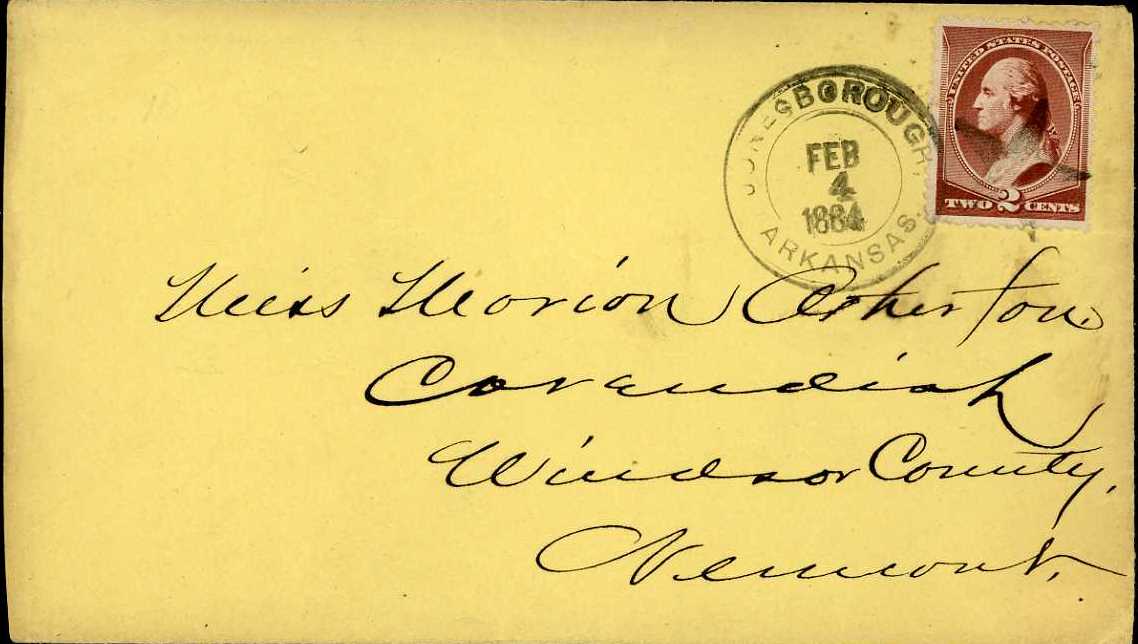 UNITED STATES POSTAGE
TWO 2 CENTS
JONESBOROUGH,
FEB
4
1884
ARKANSAS.
Miss Marion Atherton.
Cavendish
Windsor County,
Vermont.